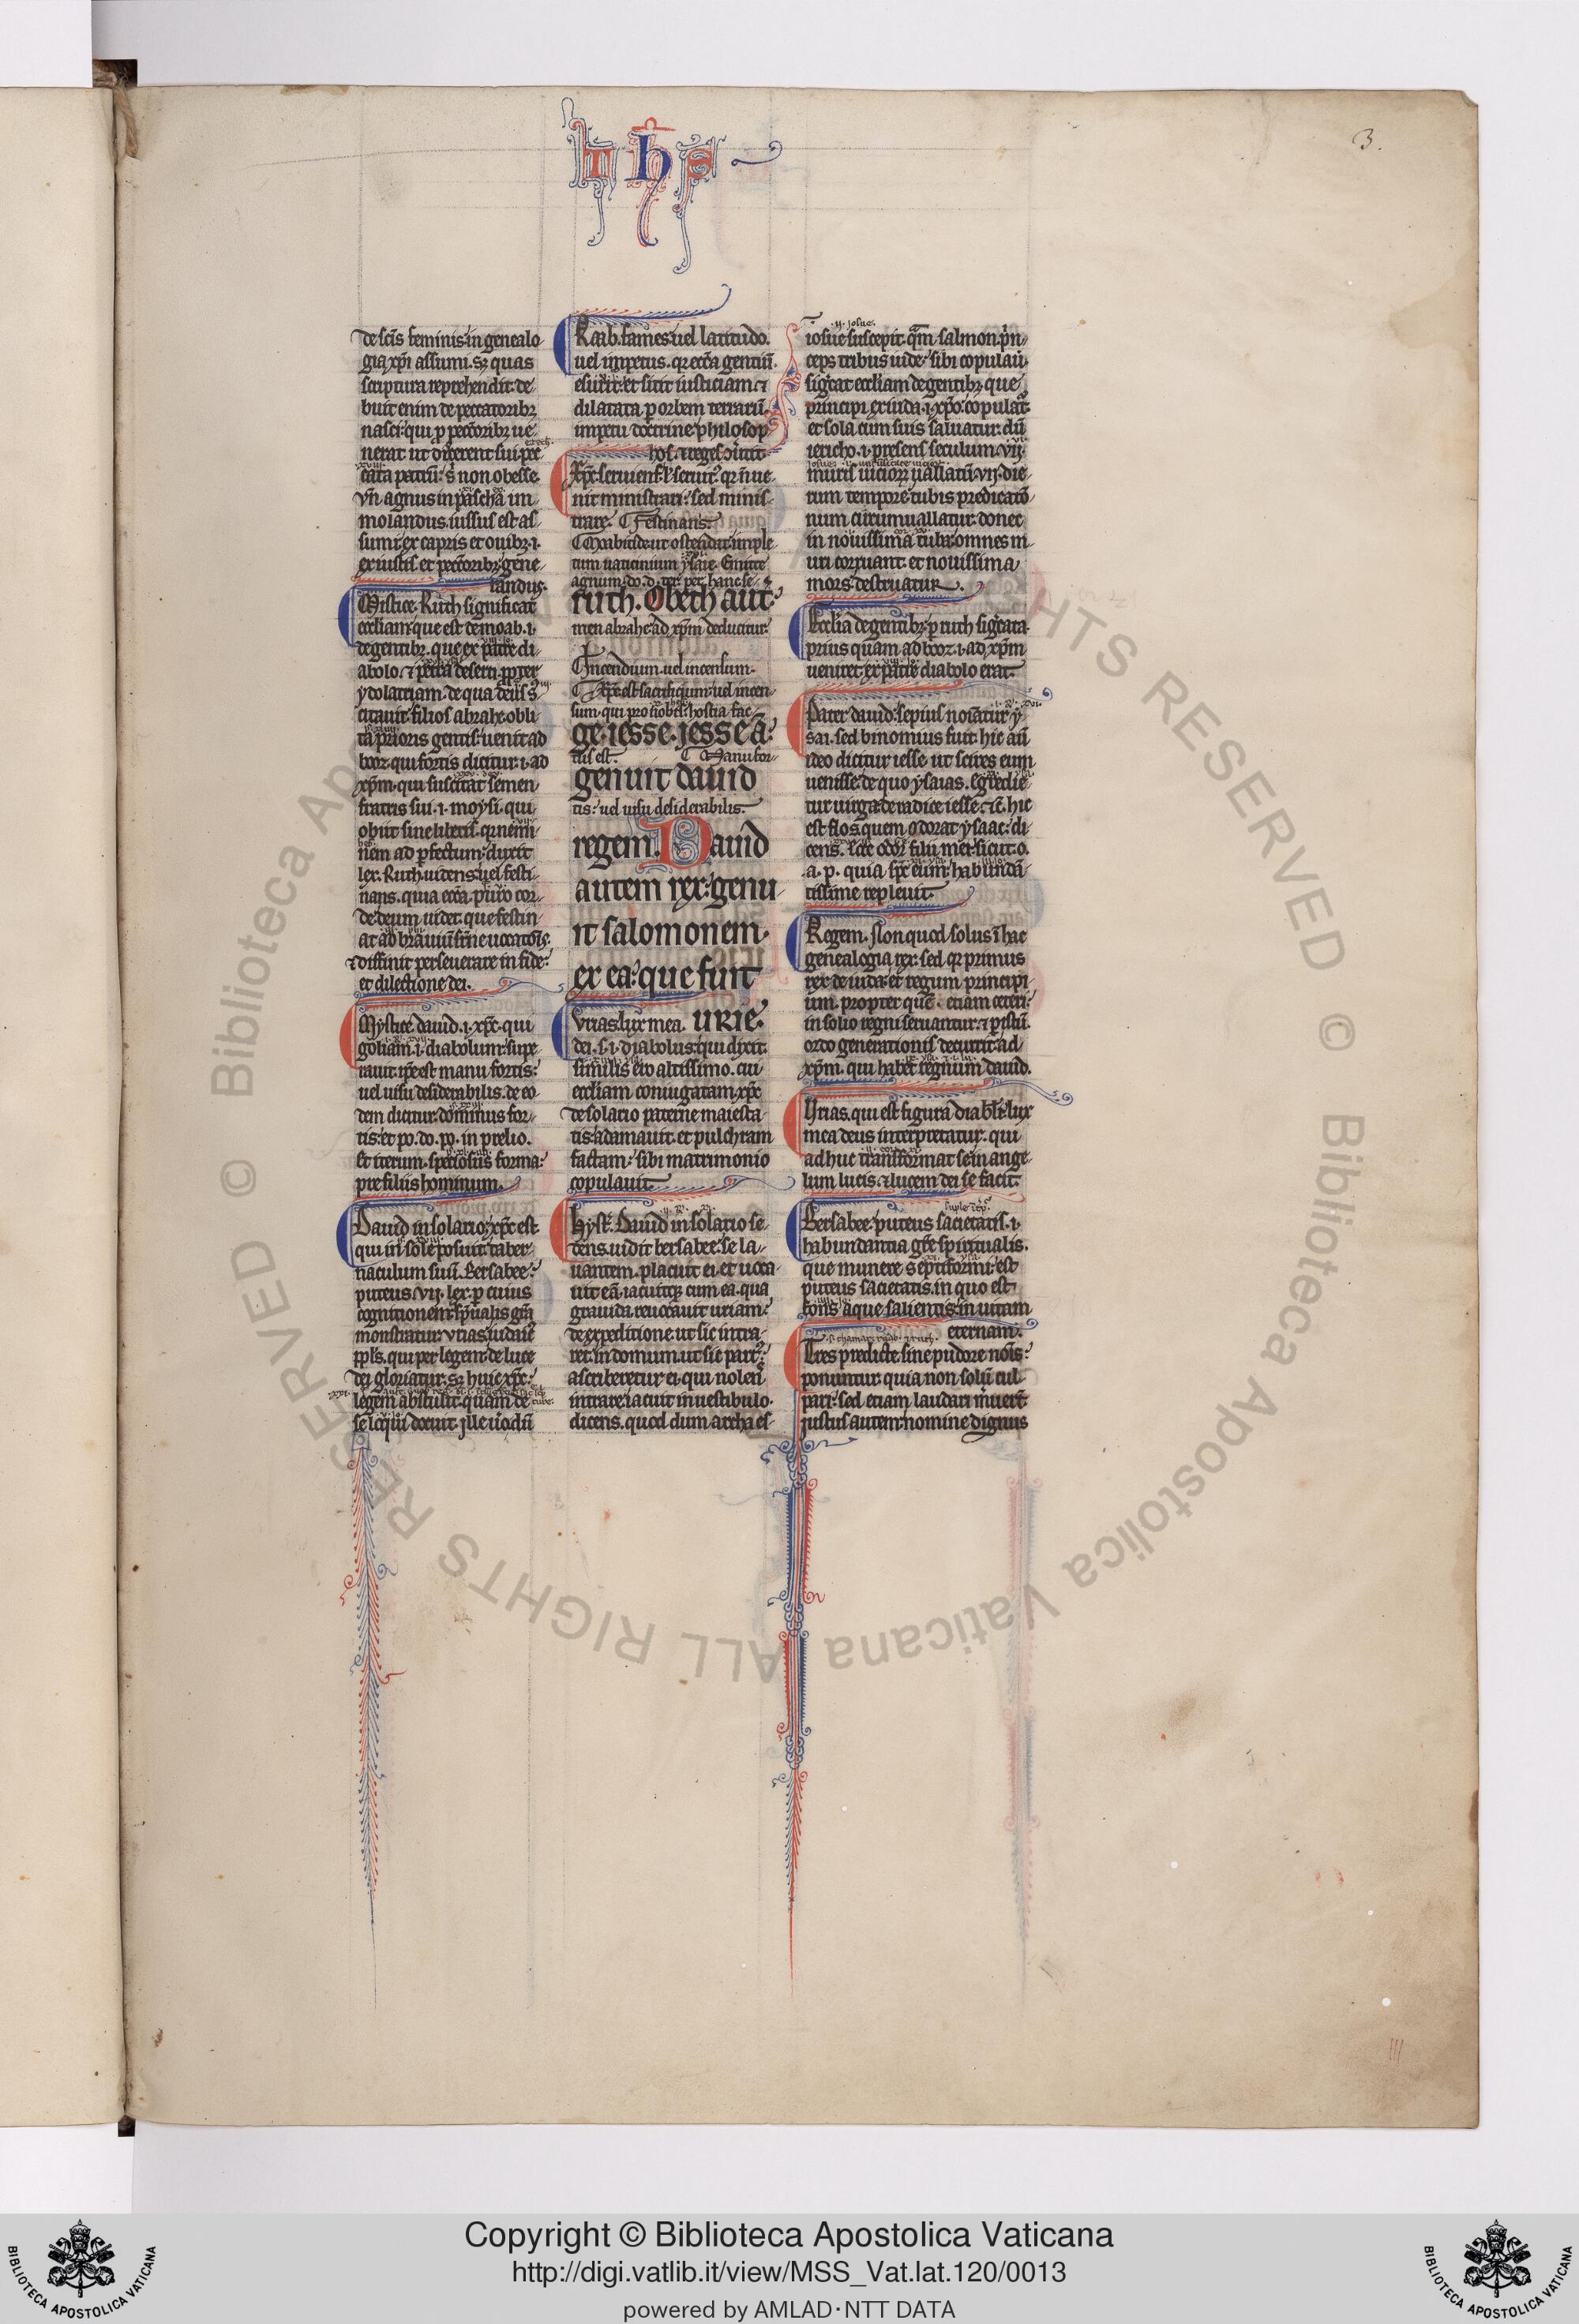 3.
de sc̃is feminis in genealo
gia xp̃i assumi. sꝫ quas
scriptura reprehendit. de
buit enim de peccatoribꝫ
nasci: qui ꝓ pecc̃oribꝫ ue
nerat ut
non obesse
agnus in pascha im
molandus iussus est as
sumi ex capris et ouibꝫ .i.
ex iustis et pecc̃oribꝫ gene
randus.
Mistice Ruth significat
eccliam que est de moab .i.
de gentibꝫ. que ex patre di
abolo
ydolatriam. de qua
citauit filios abrahe. obli
ta prioris gentis uenit ad
booz. qui fortis dicitur .i. ad
xp̃m. qui suscitat semen
fratris sui .i. moysi. qui
obiit sine liberis
nem ad perfectum duxit
lex. Ruth uidens uel festi
nans. quia
de deum uidet. que festin
at ad brauium
diffinit perseuerare in fide
et dilectione dei.
Mystice dauid .i. xp̃c. qui
goliam .i. diabolum supe
rauit ip̃e est manu fortis:
uel uisu desiderabilis. de eo
dem dicitur. dominus for
tis: et po. do. po. in prelio.
Et iterum. speciosus forma:
pre filiis hominum.
Dauid in solario: xp̃c est
qui in sole posuit taber
naculum suũ. Bersabee:
puteus .vij. lex. ꝑ cuius
cognitionem
monstratur. vrias
qui per legem de luce
dei gloriatur. sꝫ huic xp̃c:
legem abstulit. quam de
se loqui docuit. jlle
Raab. fames uel latitudo.
uel impetus.
esurit: et sitit iusticiam ⁊
dilatata ꝑ orbem terrarũ.
impetu doctrine philosop
hos ⁊ reges
nit ministrari: sed minis
trare. Festinans.
Moabitide. ut ostendat imple
tum uaticinium ysaie. Emitte
agnum. do. d. ter. per hanc se
ruth. Obeth aut̃
men abrahe ad xp̃m deducitur.
Incendium. uel incensum.
Xp̃c est sacrificium: uel incen
sum. qui pro nobis: hostia fac
ge. iesse. iesse ã:
tus est. Manu for
genuit dauid
tis: uel uisu desiderabilis.
regem. Dauid
autem rex: genu
it salomonem.
ex ea: que fuit
urie.
Vrias: lux mea
dei .s. i. diabolus: qui dixit
similis ero altissimo. cui
eccliam coniugatam: xp̃c
de solario paterne maiesta
tis: adamauit. et pulchram
factam: sibi matrimonio
copulauit.
Hyst. Dauid in solario se
dens. uidit bersabee: se la
uantem. placuit ei. et uoca
uit eã. iacuitqꝫ cum ea. qua
grauida. reuocauit uriam:
de expeditione. ut sic intra
ret in domum. ut sic part
ascriberetur ei. qui nolen
intrare: iacuit in uestibulo.
dicens. quod dum archa es
iosue suscepit. salmon pⁱn
ceps tribus iude: sibi copulau̾.
sigñat eccliam de gentibꝫ. que
principi ex iuda .i. xp̃o: copulat̃
et sola cum suis saluatur. dũ
iericho .i. presens seculum .vij.
muris uiciorum uallatũ. vij. die
rum tempore tubis predicatõ
num circumuallatur. donec
in nouissima tuba: omnes m
uri corruant. et nouissima
mors destruatur.
Ecclia de gentibꝫ. ꝑ ruth sigñata
prius quam ad booz .i. ad xp̃m
ueniret: ex patre diabolo erat.
Pater dauid: sepius noĩatur y
sai. sed binomius fuit. hic aũ
ideo dicitur iesse: ut scires eum
uenisse: de quo ysaias. Egredie
tur uirga de radice iesse
est flos quem odorat ysaac: di
cens. Ecce odor filii mei: sicut. o.
a. p. quia spc̃ eum: habundã
tissime repleuit.
Regem. Non quod solus ĩ hac
genealogia rex: sed qꝛ primus
rex de iuda: et regum principi
um. propter quẽ etiam ceteri:
in solio regni seruantur. ⁊ ꝑ istũ.
ordo generationis decurrit: ad
xp̃m. qui habet regnum dauid.
Urias. qui est figura diabli: lux
mea deus interpretatur. qui
adhuc transformat se in ange
lum lucis. ⁊ lucem dei se facit.
Bersabee: puteus sacietatis .i.
habundantia gr̃e spiritualis.
que munere septiformi: est
puteus sacietatis. in quo est
fons aque salientis: in uitam
eternam.
Tres predicte: sine pudore noĩs:
ponuntur. quia non solũ cul
pari: sed etiam laudari
justus autem: nomine dignus
Copyright © Biblioteca Apostolica Vaticana
http://digi.vatlib.it/view/MSS_Vat.lat.120/0013
powered by AMLAD·NTT DATA
BIBLIOTECA APOSTOLICA VATICANA
BIBLIOTECA APOSTOLICA VATICANA
© Biblioteca Apostolica Vaticana ALL RIGHTS RESERVED